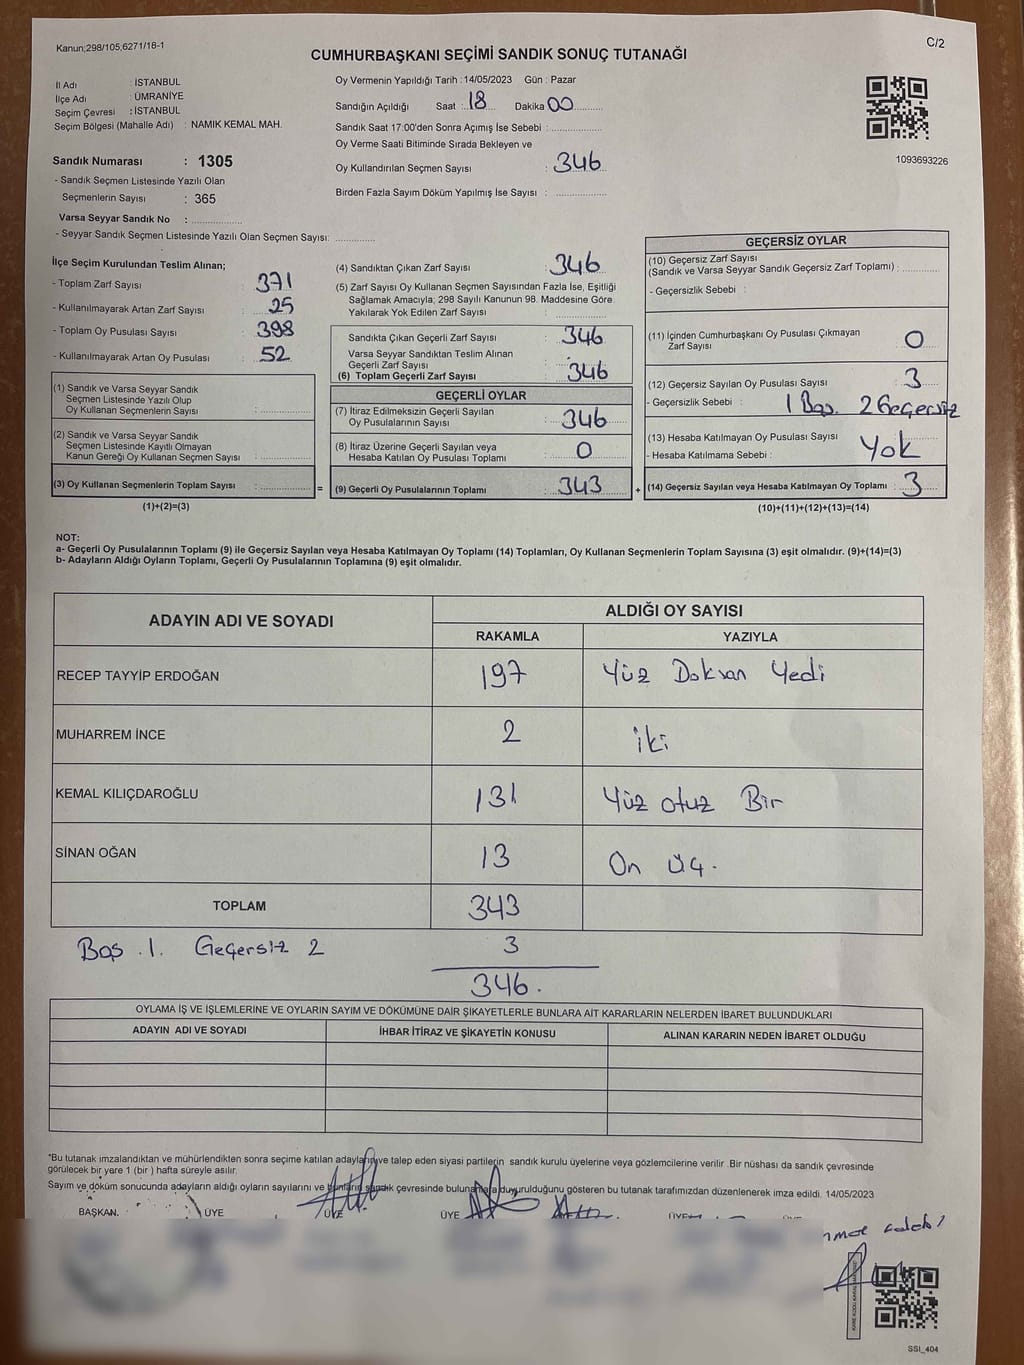 Kanun;298/105,6271/18-1
C/2
CUMHURBAŞKANI SEÇİMİ SANDIK SONUÇ TUTANAĞI
İl Adı : İSTANBUL
İlçe Adı : ÜMRANİYE
Seçim Çevresi : İSTANBUL
Seçim Bölgesi (Mahalle Adı) : NAMIK KEMAL MAH.
Oy Vermenin Yapıldığı Tarih :14/05/2023 Gün : Pazar
Sandığın Açıldığı Saat :..18.... Dakika 00..........
Sandık Saat 17:00'den Sonra Açımış İse Sebebi : ..................
Oy Verme Saati Bitiminde Sırada Bekleyen ve
Oy Kullandırılan Seçmen Sayısı : 346
Birden Fazla Sayım Döküm Yapılmış İse Sayısı : ..................
1093693226
Sandık Numarası : 1305
- Sandık Seçmen Listesinde Yazılı Olan
Seçmenlerin Sayısı : 365
Varsa Seyyar Sandık No : ..................
- Seyyar Sandık Seçmen Listesinde Yazılı Olan Seçmen Sayısı: ..............
İlçe Seçim Kurulundan Teslim Alınan;
- Toplam Zarf Sayısı : 371
- Kullanılmayarak Artan Zarf Sayısı : 25
- Toplam Oy Pusulası Sayısı : 398
- Kullanılmayarak Artan Oy Pusulası : 52
(1) Sandık ve Varsa Seyyar Sandık
Seçmen Listesinde Yazılı Olup
Oy Kullanan Seçmenlerin Sayısı : ..................
(2) Sandık ve Varsa Seyyar Sandık
Seçmen Listesinde Kayıtlı Olmayan
Kanun Gereği Oy Kullanan Seçmen Sayısı : ..................
(3) Oy Kullanan Seçmenlerin Toplam Sayısı : .................. =
(1)+(2)=(3)
(4) Sandıktan Çıkan Zarf Sayısı : 346
(5) Zarf Sayısı Oy Kullanan Seçmen Sayısından Fazla İse, Eşitliği
Sağlamak Amacıyla; 298 Sayılı Kanunun 98. Maddesine Göre
Yakılarak Yok Edilen Zarf Sayısı : ..................
Sandıkta Çıkan Geçerli Zarf Sayısı : 346
Varsa Seyyar Sandıktan Teslim Alınan
Geçerli Zarf Sayısı :
(6) Toplam Geçerli Zarf Sayısı : 346
GEÇERLİ OYLAR
(7) İtiraz Edilmeksizin Geçerli Sayılan
Oy Pusulalarının Sayısı : 346
(8) İtiraz Üzerine Geçerli Sayılan veya
Hesaba Katılan Oy Pusulası Toplamı : 0
(9) Geçerli Oy Pusulalarının Toplamı : 343 +
GEÇERSİZ OYLAR
(10) Geçersiz Zarf Sayısı
(Sandık ve Varsa Seyyar Sandık Geçersiz Zarf Toplamı) : ..........
- Geçersizlik Sebebi :
(11) İçinden Cumhurbaşkanı Oy Pusulası Çıkmayan
Zarf Sayısı : 0
(12) Geçersiz Sayılan Oy Pusulası Sayısı : 3
- Geçersizlik Sebebi : 1 Boş. 2 Geçersiz
(13) Hesaba Katılmayan Oy Pusulası Sayısı : Yok
- Hesaba Katılmama Sebebi :
(14) Geçersiz Sayılan veya Hesaba Katılmayan Oy Toplamı : 3
(10)+(11)+(12)+(13)=(14)
NOT:
a- Geçerli Oy Pusulalarının Toplamı (9) ile Geçersiz Sayılan veya Hesaba Katılmayan Oy Toplamı (14) Toplamları, Oy Kullanan Seçmenlerin Toplam Sayısına (3) eşit olmalıdır. (9)+(14)=(3)
b- Adayların Aldığı Oyların Toplamı, Geçerli Oy Pusulalarının Toplamına (9) eşit olmalıdır.
ADAYIN ADI VE SOYADI ALDIĞI OY SAYISI
RAKAMLA YAZIYLA
RECEP TAYYİP ERDOĞAN 197 Yüz Doksan Yedi
MUHARREM İNCE 2 iki
KEMAL KILIÇDAROĞLU 131 Yüz otuz Bir
SİNAN OĞAN 13 On Üç.
TOPLAM 343
Boş .1. Geçersiz 2 3
346.
OYLAMA İŞ VE İŞLEMLERİNE VE OYLARIN SAYIM VE DÖKÜMÜNE DAİR ŞİKAYETLERLE BUNLARA AİT KARARLARIN NELERDEN İBARET BULUNDUKLARI
ADAYIN ADI VE SOYADI İHBAR İTİRAZ VE ŞİKAYETİN KONUSU ALINAN KARARIN NEDEN İBARET OLDUĞU
*Bu tutanak imzalandıktan ve mühürlendikten sonra seçime katılan adayların ve talep eden siyasi partilerin sandık kurulu üyelerine veya gözlemcilerine verilir .Bir nüshası da sandık çevresinde
görülecek bir yere 1 (bir ) hafta süreyle asılır.
Sayım ve döküm sonucunda adayların aldığı oyların sayılarını ve bunların sandık çevresinde bulunanlara duyurulduğunu gösteren bu tutanak tarafımızdan düzenlenerek imza edildi. 14/05/2023
BAŞKAN. ÜYE ÜYE ÜYE
SSI_404